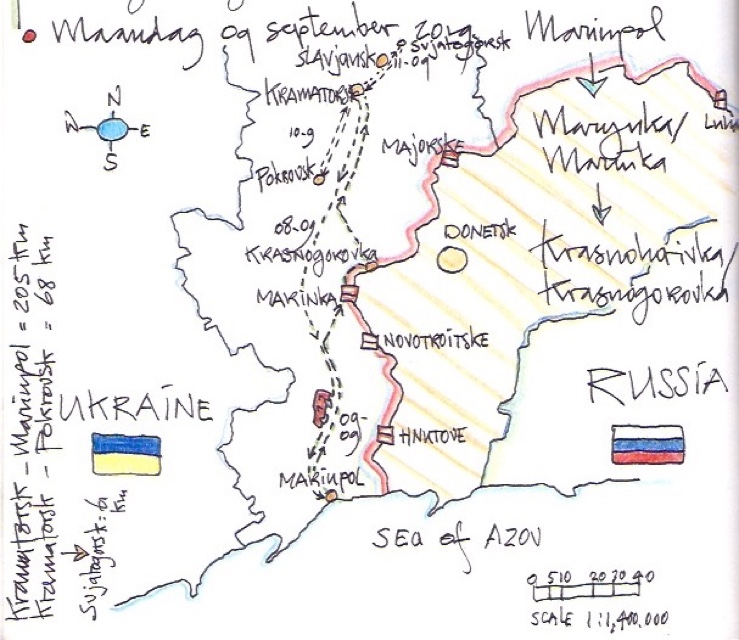 Maandag 09 september 2019
Marinpol
Svjatogorsk
Slavjansk
11-09
KRAMATORSK
N
W
E
S
10-9
MAJORSKE
Luhn
Marynka/
Marinka
POKROVSK
08-09
DONETSK
KRASNOGOROVKA
Krasnohorivka/
Krasnogorovka
MARINKA
NOVOTROITSKE
UKRAINE
RUSSIA
09-
09
HNUTOVE
MARINPOL
SEA of AZOV
0 5 10 20 30 40
SCALE 1:1,400.000
Kramatorsk - Marinpol = 205 km
Kramatorsk - Pokrovsk = 68 km
Svjatogorsk = 61
km